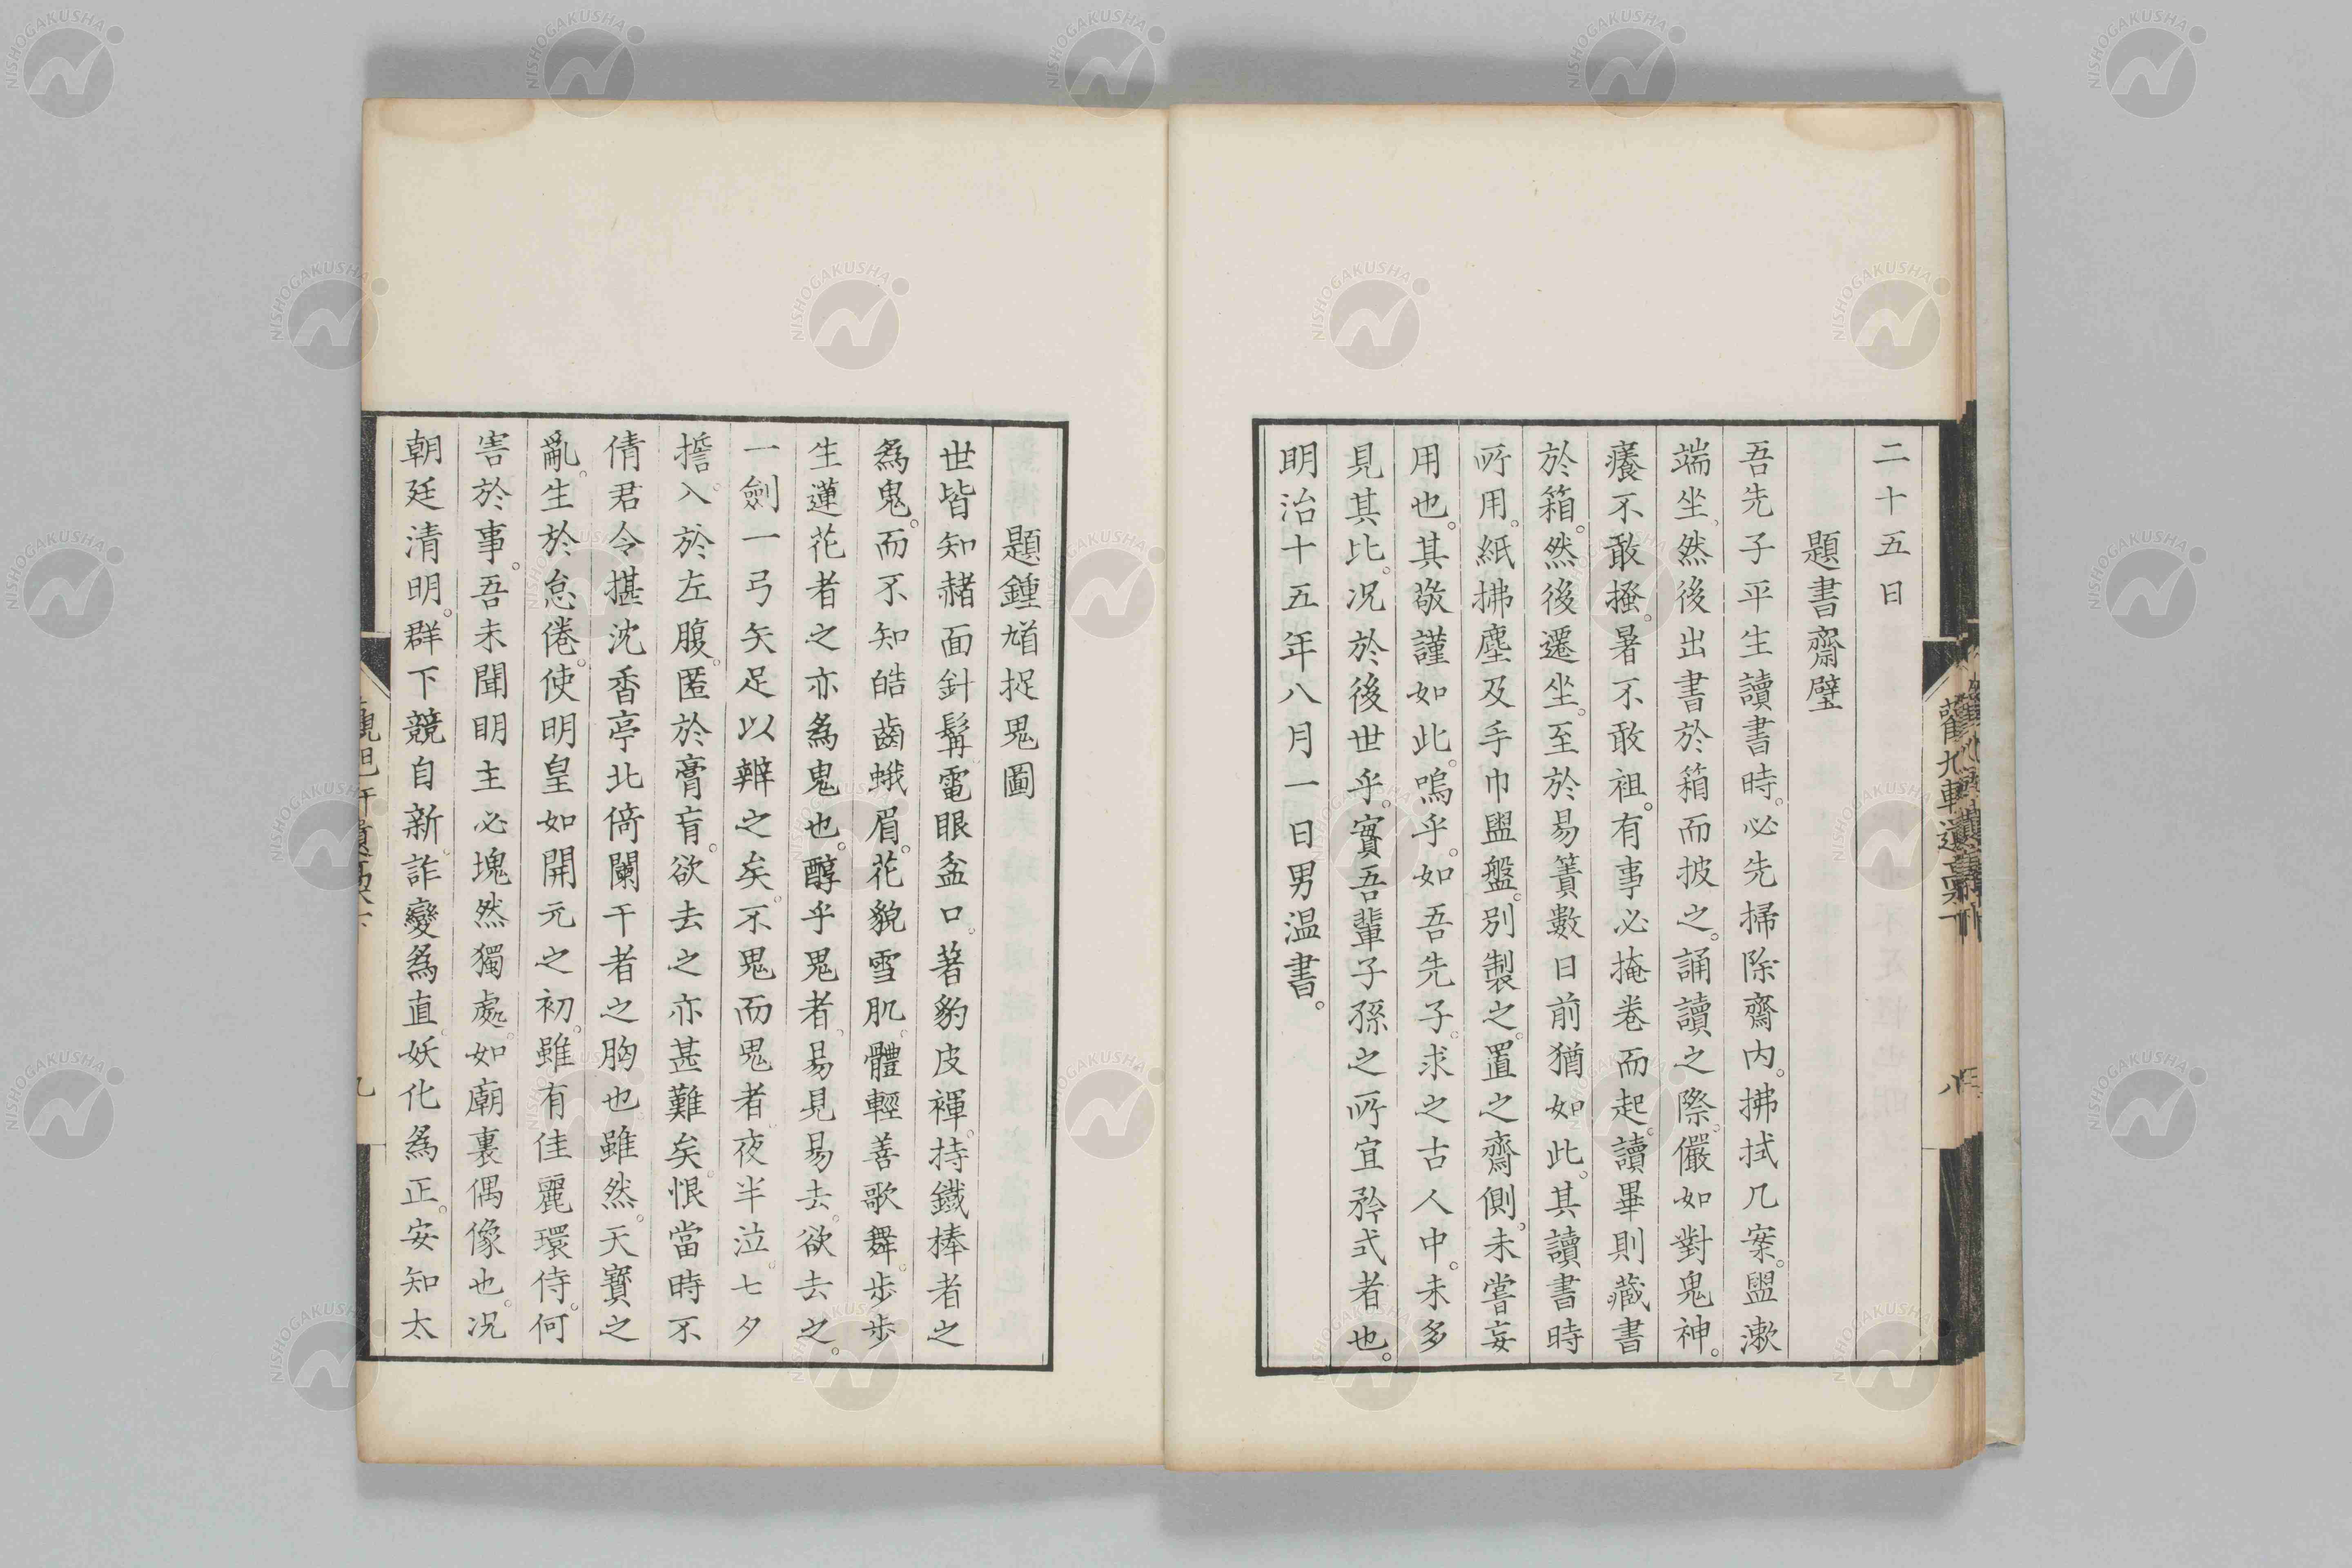 二十五日
題書齋壁
吾先子平生讀書時。必先掃除齋內。拂拭几案。盥漱
端坐。然後出書於箱而披之。誦讀之際。儼如對鬼神。
癢不敢搔。暑不敢袒。有事必掩卷而起。讀畢則藏書
於箱。然後遷坐。至於易簀數日前猶如此。其讀書時
所用。紙拂塵及手巾盥盤。別製之。置之齋側。未嘗妄
用也。其敬謹如此。嗚乎。如吾先子。求之古人中。未多
見其比。況於後世乎。實吾輩子孫之所宜矜式者也。
明治十五年八月一日男温書。
題鍾馗捉鬼圖
世皆知赭面針髯電眼盆口。著豹皮褌。持鐵棒者之
為鬼。而不知皓齒蛾眉。花貌雪肌。體輕善歌舞。步步
生蓮花者之亦為鬼也。醇乎鬼者。易見易去。欲去之。
一劍一弓矢足以辨之矣。不鬼而鬼者。夜半泣。七夕
擔。入於左腹。匿於膏肓。欲去之亦甚難矣。恨當時不
倩君令揕沈香亭北倚闌干者之胸也雖然。天寶之
亂。生於怠倦。使明皇如開元之初。雖有佳麗環侍。何
害於事。吾未聞明主必塊然獨處。如廟裏偶像也。況
朝廷清明。群下競自新。詐變為直。妖化為正。安知太
八
九
NISHOGAKUSHA